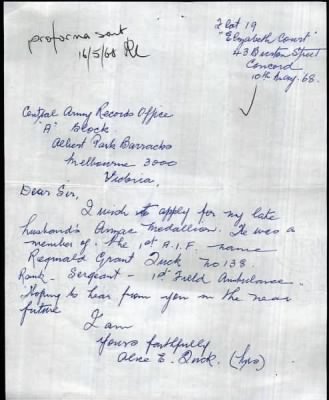 proforma sent
16/5/68
Flat 19
"Elizabeth Court"
43 Burton Street
Concord
10th May. 68.
Central Army Records Office
"A" Block
Albert Park Barracks
Melbourne 3000
Victoria.
Dear Sir,
I wish to apply for my late
husband's Anzac Medallion. He was a
member of the 1st A.I.F. name
Reginald Grant Duck no 138.
Rank - Sergeant - 1st Field Ambulance.
Hoping to hear from you in the near
future
I am
Yours faithfully
Alice E. Duck. (Mrs)